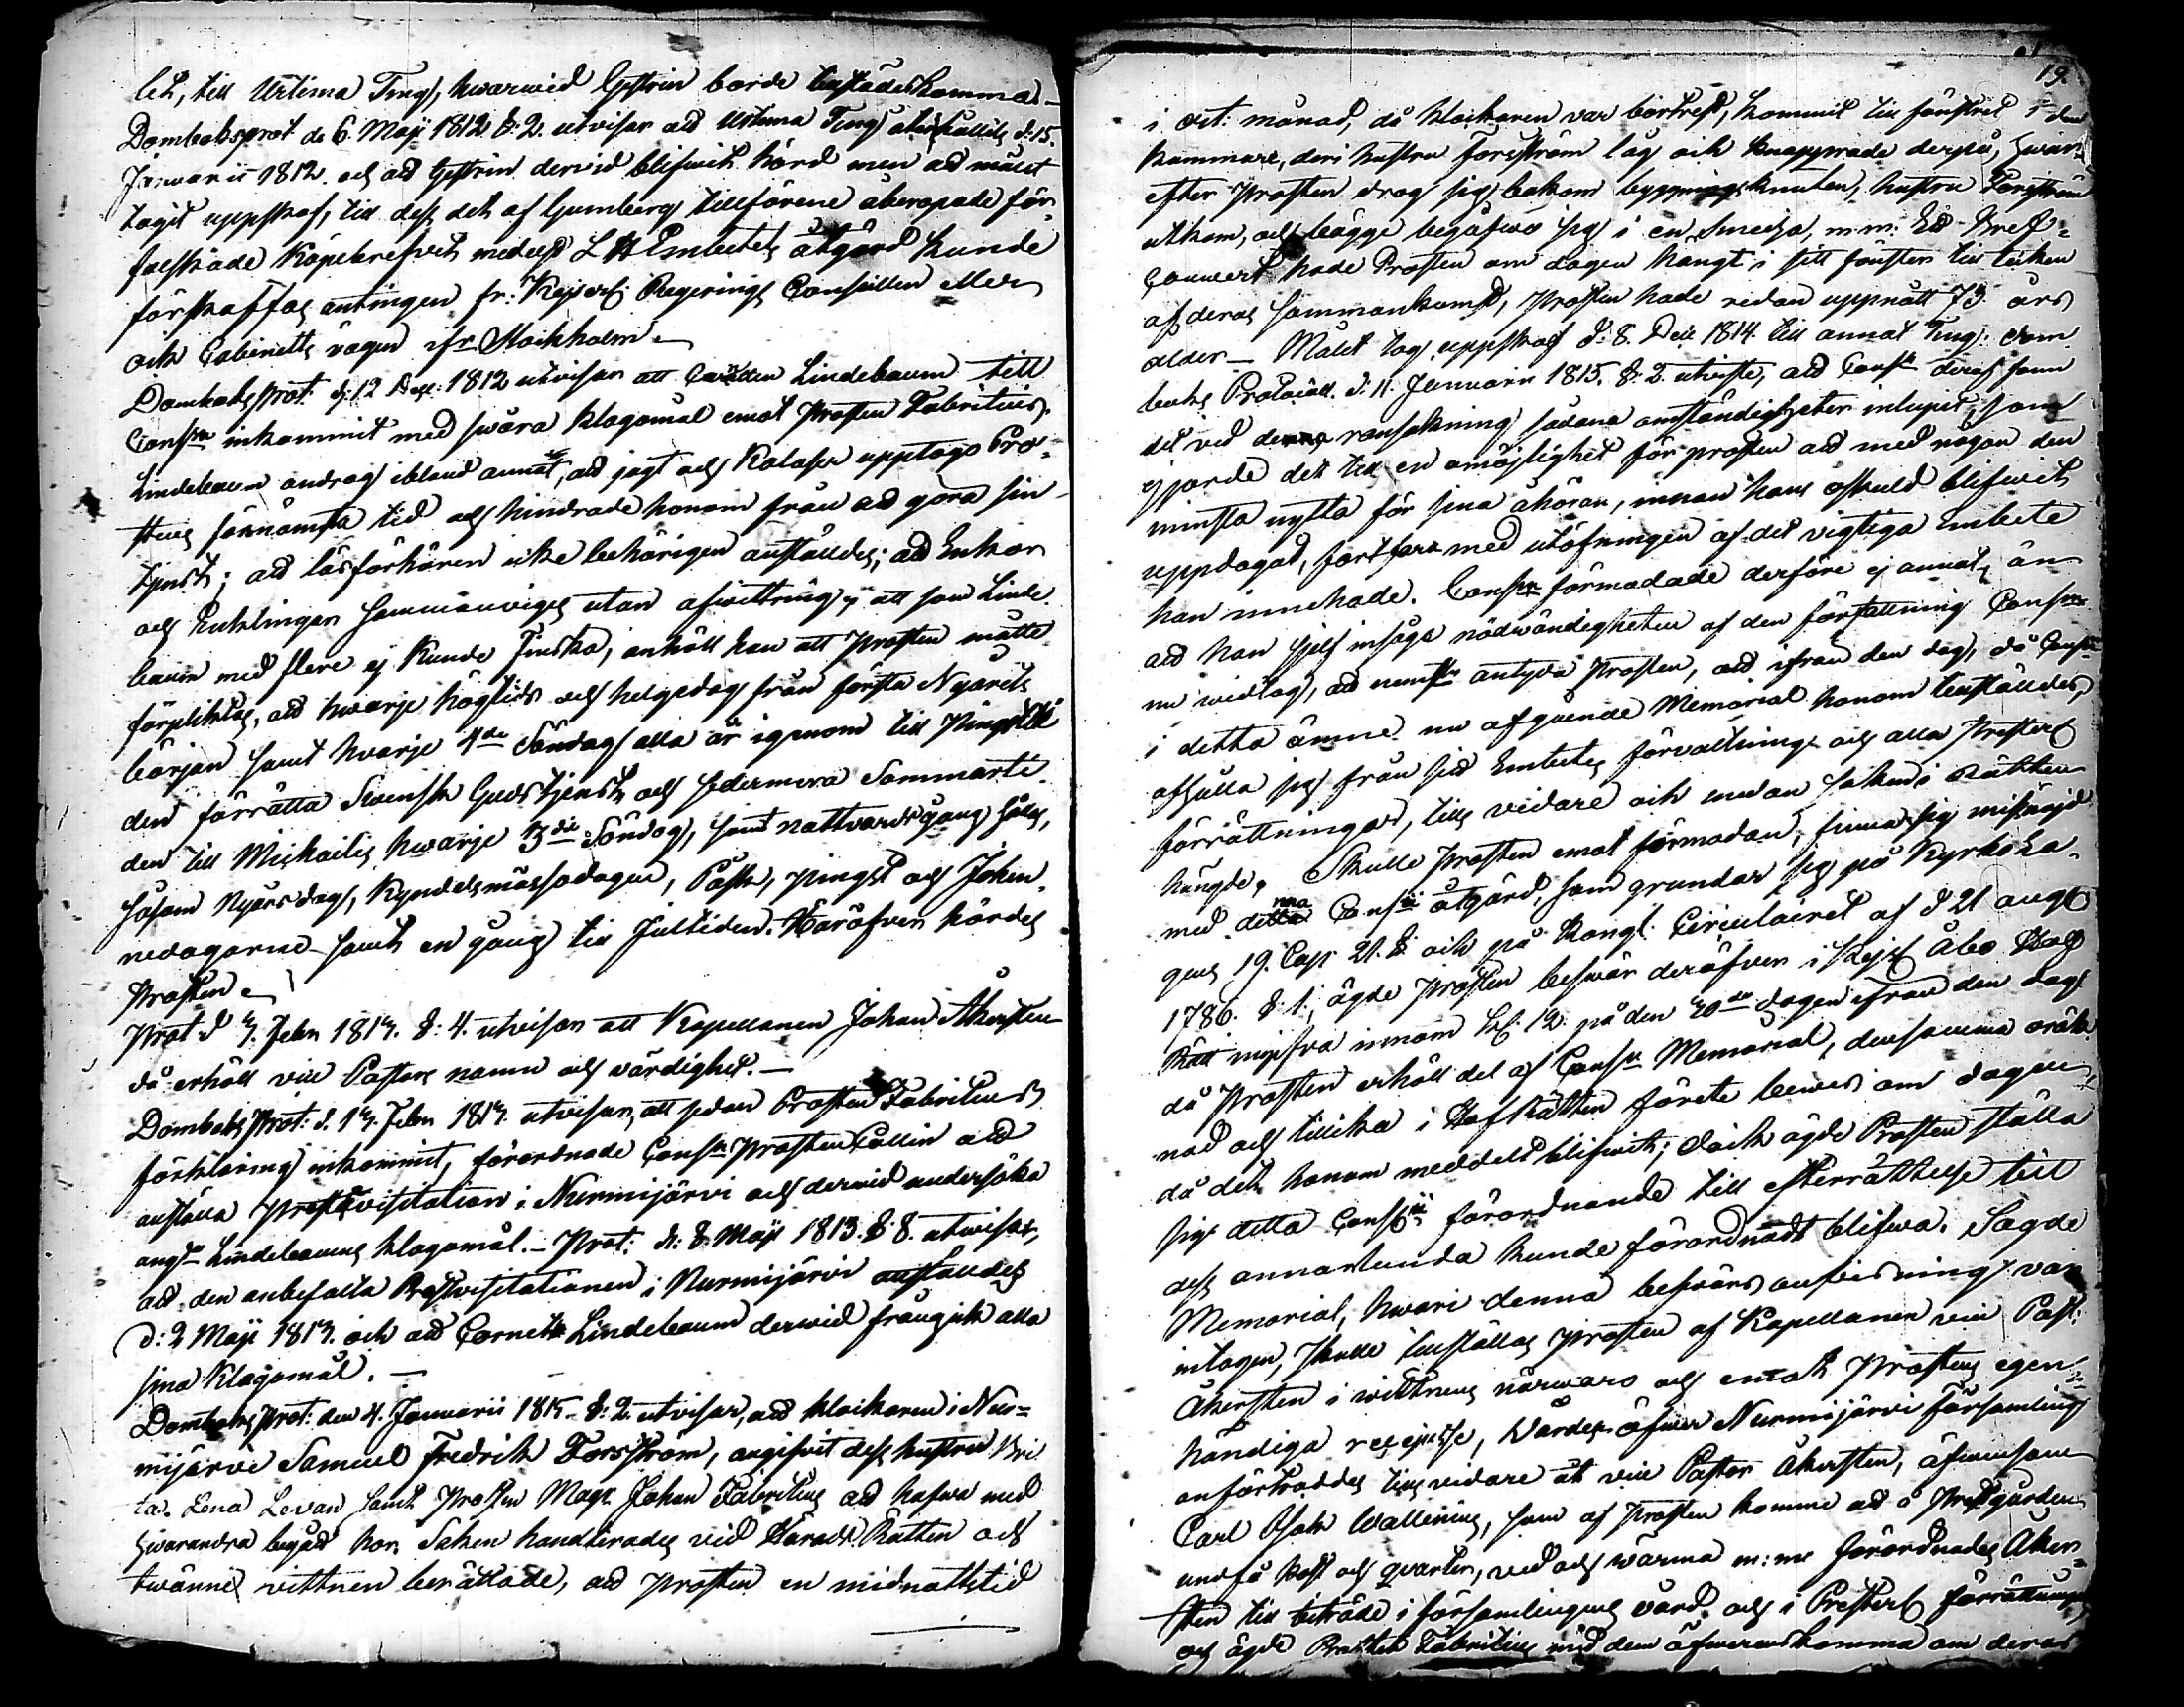 let, till Urtima Ting, hwarwid Gestrin borde tillstädeskomma.
Domkaps prot. de 6. Maji 1812. §. 2. utvisar att Urtima Ting d. 15.
Januarii 1812. och att Gestrin dervid blifwit hörd men att målet
tagit uppskof, till dess det af Gumberg tillförene åberopade för-
falskade Köpebrefvet medelst L H Embetets åtgärd kunde
förskaffas antingen fr: Kejserl: Regerings Conseillen eller
ock Cabinetts vägen ifr. Stockholm.
Domkaps Prot. d: 12 1812 utvisar att Cornetten Lindebaum till
Cons. inkommit med swåra klagomål emot Prosten Fabritius.
Lindebaum androg ibland annat, att jagt och Kalaser upptogo Pro-
stens förnämsta tid och hindrade honom från att göra sin
tjenst; att läsförhören icke behörigen anställdes; att Enkor
och Enklingar sammanvigts utan afwittring; att som Linde-
baum med flere ej kunde Finska, anhöll han att Prosten måtte
förpliktas, att hwarje högtids och helgedag från första Nyårets
början samt hvarje 4de Söndag alla år igenom till Pingsti-
den förrätta Swensk Gudstjenst och sedermera Sommarti-
den till Michaelis hwarje 3die Söndag, samt nattvardsgång hålas,
såsom Nyårsdag, Kyndelsmässodagen, Påsk, Pingst och Johan-
nedagarne samt en gång till Jultiden. Häröfver hördes
Prosten.
Prot d 3. Febr 1813. §: 4. utvisar att Kapellanen Johan Åkersten
då erhöll vice Pastors namn och värdighet.
Domkaps Prot: d. 13. Febr 1813. utvisar, att sedan Prosten Fabritius
förklaring inkommit, förordnade Cons. Prosten Collin att
anställa Prostvisitation i Nurmijärvi och dervid undersöka
ang. Lindebaums klagomål. Prot: d: 8 Maji 1813. § 8. utwisar,
att den anbefalta Prostvisitationen i Nurmijärvi anstäldes
d: 2 Maji 1813. och att Cornett Lindebaum derwid frångick alla
sina Klagomål.
Domkaps Prot: den 4. Januarii 1815. §: 2. utvisar, att klockaren i Nur-
mijärvi Samuel Fredrik Forsström, angifvit dess hustru Bri-
ta Lena Levan samt Prosten Mag. Johan Fabritius att hafwa med
hwarandra begådt hor. Saken handterades vid Härads Rätten och
twänne vittnen berättade, att Prosten en midnattstid
19.
i oct: månad, då klockaren var bortrest, kommit till fönstret i den
kammare, deri hustru Forsström låg och knappade derpå, hwar-
efter Prosten drog sig bakom byggningsknuten, hustru Forsström
utkom, och bägge begåfwo sig i en Smedja, m.m. Ett Bref-
Couvert hade Prosten om dagen hängt i sitt fönster till tecken
af deras Sammankomst, Prosten hade redan uppnått 73 års
ålder. Målet tog uppskof d: 8. Dec 1814. till annat Ting. Dom
kaps Protocoll. d: 11. Januarii 1815. §: 2. utviste, att Cons. deraf funn
det vid denna ransakning sådana omständigheter inlupit, som
gjorde det till en omöjlighet för prosten att med någon den
minsta nytta för sina åhörare, innan hans oskuld blifwit
uppdagad, fortfara med utöfningen af det vigtiga Embete
han innehade. Cons. förmodade derföre ej annat, än
att han sjelf insåge nödwändigheten af den författning Cons.
nu widtog, att nemligen antyda Prosten, att ifrån den dag, då Cons.
i detta ämne nu afgående Memorial honom tillställdes,
afhålla sig från sitt Embetes förvaltning och alla Presterl.
förrättningar, tills vidare och medan saken i Rätten
hängde. Skulle Prosten emot förmodan, finna sig missnöjd
med denna Cons. åtgärd, som grundar sig på Kyrko La-
gens 19. Cap. 21. § och på Kongl. Circulairet af d 21 aug.
1786. § 1., ägde Prosten beswär deröfver i Kejs. Åbo Hof
Rätt ingifva innom kl. 12 på den 30de dagen ifrån den dag
då Prosten erhöll del af Cons. Memorial, densamma oräk-
nad och tillika i HofRätten förete bewis om dagen,
då det honom meddelt blifwit; dock ägde Prosten ställa
sig detta Cons. förordnande till efterrättelse till
dess annorlunda kunde förordnadt blifwa. Sagde
Memorial, hwari denna beswärs anvisning var
intagen, skulle tillställas Prosten af Kapellanen vice Past:
Åkersten i wittnens närwaro och emot Prostens egen-
händiga recepisse, Vården öfwer Nurmijärvi församling
anförtroddes tills vidare åt vice Pastor Åkersten, äfwensom
Carl Isak Wallenius, som af Prosten komme att å Prestgården
undfå kost och qvarter, ved och wärma m:m förordnades Åker-
sten till biträde i församlingens vård och i Presterl. förrättningar
och ägde Prosten Fabritius med dem öfwerenskomma om deras